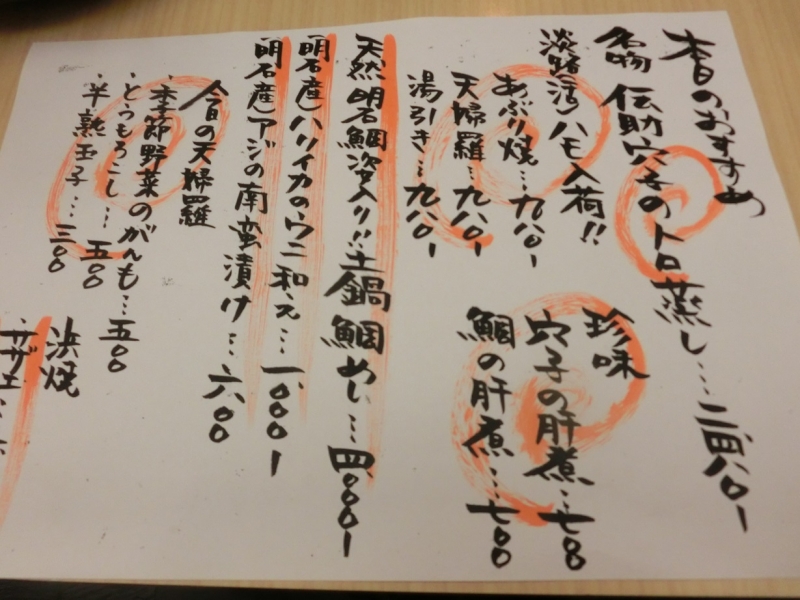 本日のおすすめ
名物 伝助穴子のトロ蒸し…二四八〇-
淡路(活)ハモ入荷!!
あぶり焼…九八〇-
天婦羅…九八〇-
湯引き…九八〇-
珍味
穴子の肝煮…七〇〇
鯛の肝煮…七〇〇
天然明石鯛姿入り!!土鍋鯛めし…四〇〇〇-
明石産)ハリイカのウニ和え…一〇〇〇-
明石産)アジの南蛮漬け…六〇〇
今日の天婦羅
・季節野菜のがんも…五〇〇
・とうもろこし…五〇〇
・半熟玉子…三〇〇
浜焼
サザエ…